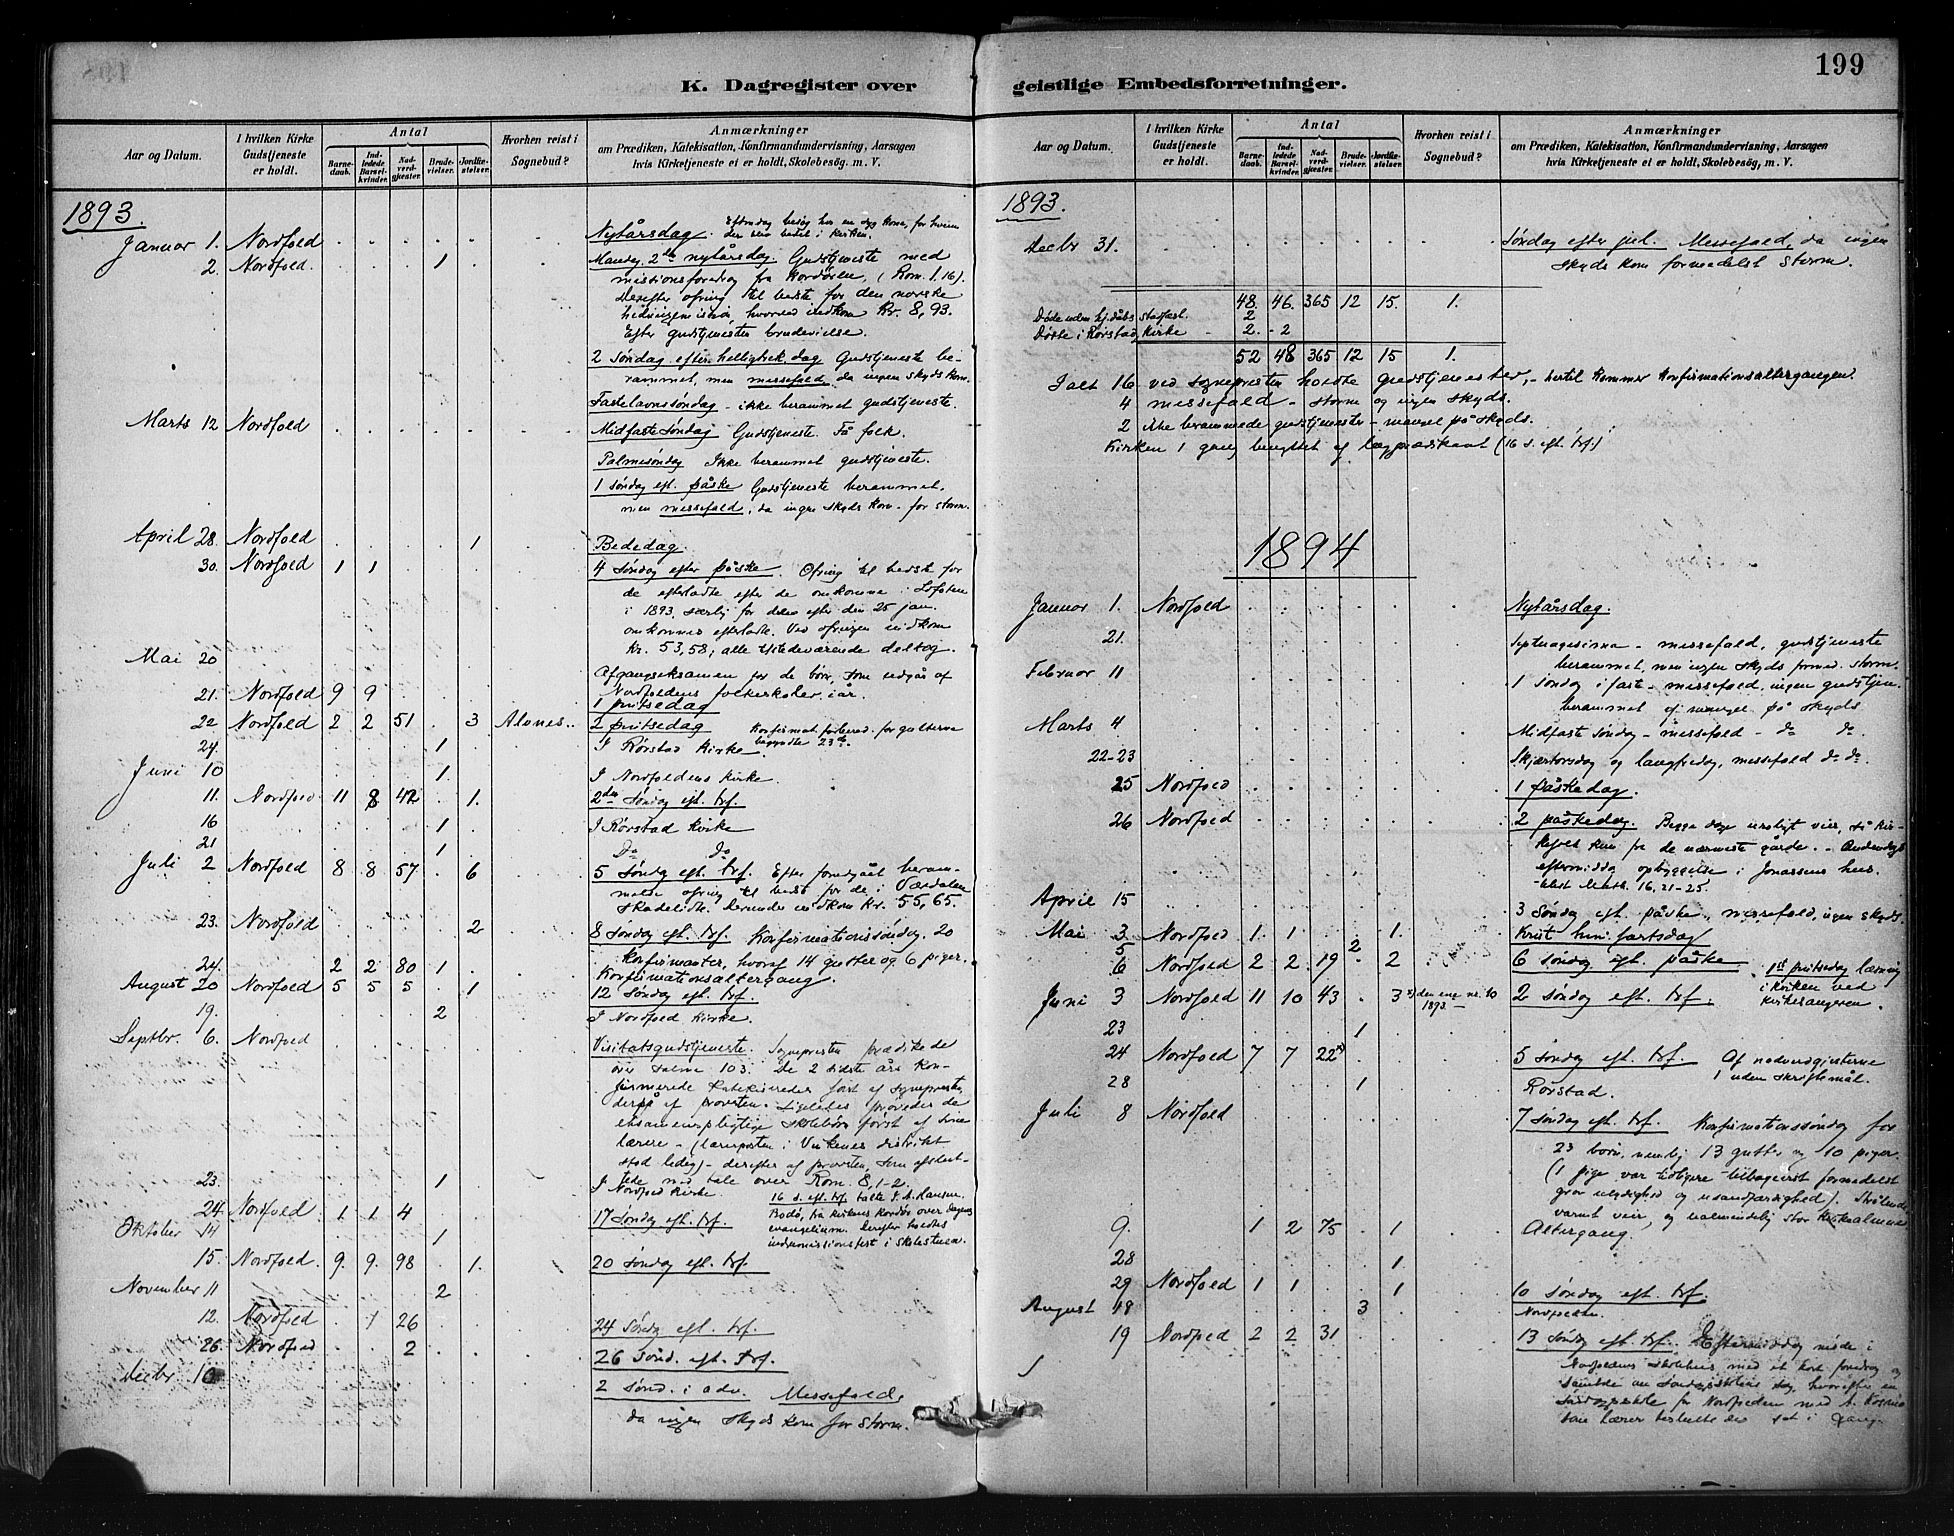 199
K. Dagregister over geistlige Embedsforretninger.
Aar og Datum.
I hvilken Kirke Gudstjeneste er holdt.
Antal
Barnedaab.
Indledede Barselkvinder.
Nadverdgjester.
Brudevielser.
Jordfæstelser.
Hvorhen reist i Sognebud?
Anmærkninger
om Prædiken, Katekisation, Konfirmandundervisning, Aarsagen
hvis Kirketjeneste ei er holdt, Skolebesøg, m. V.
1893.
Januar 1. Nordfold Nytårsdag.
2. Nordfold. 1 Mandag 2den nytårsdag. Gudstjeneste med
missionsforedrag fra Kordøren, (Rom. 1.16).
Derefter ofring til bedste for den norske
hvorved indkom Kr. 8,93.
Efter gudstjenesten brudevielse.
2 Søndag efter helligtrek. dag Gudstjeneste be-
rammet, men messefald da ingen skyds kom.
Fastelavnssøndag - ikke berammet gudstjeneste.
Marts 12 Nordfold Midfastesøndag Gudstjeneste. Få folk.
Palmesøndag Ikke berammet gudstjeneste.
1 søndag eft. påske Gudstjeneste berammet,
men messefald, da ingen skyds kom - for storm.
April 28. Nordfold 1 Bededag.
30. Nordfold 1 1 4 Søndag efter påske. Ofring til bedste for
de efterladte efter de omkomne i Lofoten
i 1893, særlig for dem efter den 25 jan.
omkomnes efterladte. Ved ofringen indkom
kr. 53,58; alle tilstedeværende deltog.
Mai 20 Afgangseksamen for de børn, som udgår af
Nordfoldens folkeskoler i år.
21. Nordfold 9 9 1 pintsedag
22 Nordfold 2 2 51 3 2 pintsedag Konfirmat. forbered. for gutterne
begyndte 23de.
24. 1 I Rørstad kirke
Juni 10 1. I Nordfoldens kirke
11. Nordfold 11 8 42 1. 2den Søndag eft. trf.
16 1 I Rørstad kirke
21 1 Do Do
Juli 2 Nordfold 8 8 57 6 5 Søndag eft. trf. Efter foregået beram-
melse ofring til bedste for de i Værdalen
skadelidte. Derunder indkom kr. 55,65.
23. Nordfold 2 8 Søndag eft. trf. Konfirmationssøndag, 20
konfirmanter, hvoraf 14 gutter og 6 piger.
24. 2 2 80 1 Konfirmationsaltergang.
August 20 Nordfold 5 5 5 1 12 Søndag eft. trf.
19. 2 I Nordfold kirke.
Septbr. 6. Nordfold Visitatsgudstjeneste. Sognepresten prædikede
over Salme 103. De 2 sidste års kon-
firmerede katekiseredes først af sognepresten,
derpå af provsten. Ligeledes prøvedes de
eksamenspligtige skolebørn først af sine
lærere - (lærerposten i Vinkenes distrikt
stod ledig) - derefter af provsten, som afslut-
tede med tale over Rom. 8,1-2.
23. 1 I Nordfold kirke.
16 s. eft. trf. talte
Bodø, fra kirkens kordør over dagens
evangelium. Derefter holdtes
indremissionsfest i skolestuen.
24. Nordfold 1 1 4 17 Søndag eft. trf.
Oktober 14 1
15. Nordfold. 9. 9. 98 1. 20 Søndag eft. trf.
November 11 2
12. Nordfold 1 26 24 Søndag eft. trf.
26. Nordfold 2 26 Sønd. eft. trf.
Decbr 10 2 Sønd. i adv. Messefald,
da ingen skyds kom for storm.
Aar og Datum.
I hvilken Kirke Gudstjeneste er holdt.
Antal
Barnedaab.
Indledede Barselkvinder.
Nadverdgjester.
Brudevielser.
Jordfæstelser.
Hvorhen reist i Sognebud?
Anmærkninger
om Prædiken, Katekisation, Konfirmandundervisning, Aarsagen
hvis Kirketjeneste ei er holdt, Skolebesøg, m. V.
1893.
Decbr 31. Søndag efter jul. Messefald, da ingen
skyds kom formedelst storm.
48. 46. 365 12 15. 1.
Døde uden hj.dåbs stadfæst. 2
Døbte i Rørstad kirke 2. - 2
52 48 365 12 15 1.
Ialt 16 ved sognepresten holdte gudstjenester, - hertil kommer konfirmationsaltergangen.
4 messefald - storm og ingen skyds.
2 ikke berammede gudstjenester - mangel på skyds.
Kirken 1 gang benyttet af lægprædikant (16 s. eft. trf.)
1894
Januar 1. Nordfold Nytårsdag.
21. Septuagesima - messefald, gudstjeneste
berammet, men ingen skyds formed. storm.
Februar 11 1 Søndag i fast - messefald, ingen gudstjen.
berammet af mangel på skyds
Marts 4 Midfast Søndag - messefald - do do.
22-23 Skjærtorsdag og langfredag, messefald do do.
25 Nordfold 1 påskedag.
26 Nordfold 2 påskedag. Begge dage uroligt veir, så kir-
kefolk kun fra de nærmeste gårde. - Andendags
eftermiddag opbyggelse i Jonassens hus.
- tekst Matth. 16, 21-25.
April 15 3 Søndag eft. påske, messefald, ingen skyds.
Mai 3 Nordfold 1. 1 1. Krist himlfartsdag
5 2
6 Nordfold 2 2 19 2 6 søndag eft. påske. 1st pintsedag læsning
i kirken ved
kirkesangeren.
Juni 3 Nordfold 11 10 43 3 den ene no. 10
1893. 2 søndag eft. trf.
23 1
24 Nordfold 7 7 22 5 søndag eft. trf. Af nadverdgjesterne
1 uden skriftemål.
28 1 Rørstad.
Juli 8 Nordfold 7 Søndag eft. trf. Konfirmationssøndag for
23 børn, nemlig 13 gutter og 10 piger.
(1 pige var tidligere tilbagevist formedelst
grov ulydighed og usandfærdighed). Strålende
varmt veir, og ualmindelig stor kirkealmue
9. 1 2 75 1 Altergang.
28 1.
29 Nordfold 1 1 1 10 Søndag eft. trf.
August 18 3
19 Nordfold 2 2 31 13 Søndag eft. trf. Eftermiddag møde i
Nordfoldens skolehus, med et kort foredrag og
samtale om søndagsskolens sag, hvorefter en
søndagsskole for Nordfolden med
som lærer besluttedes sat i gang.